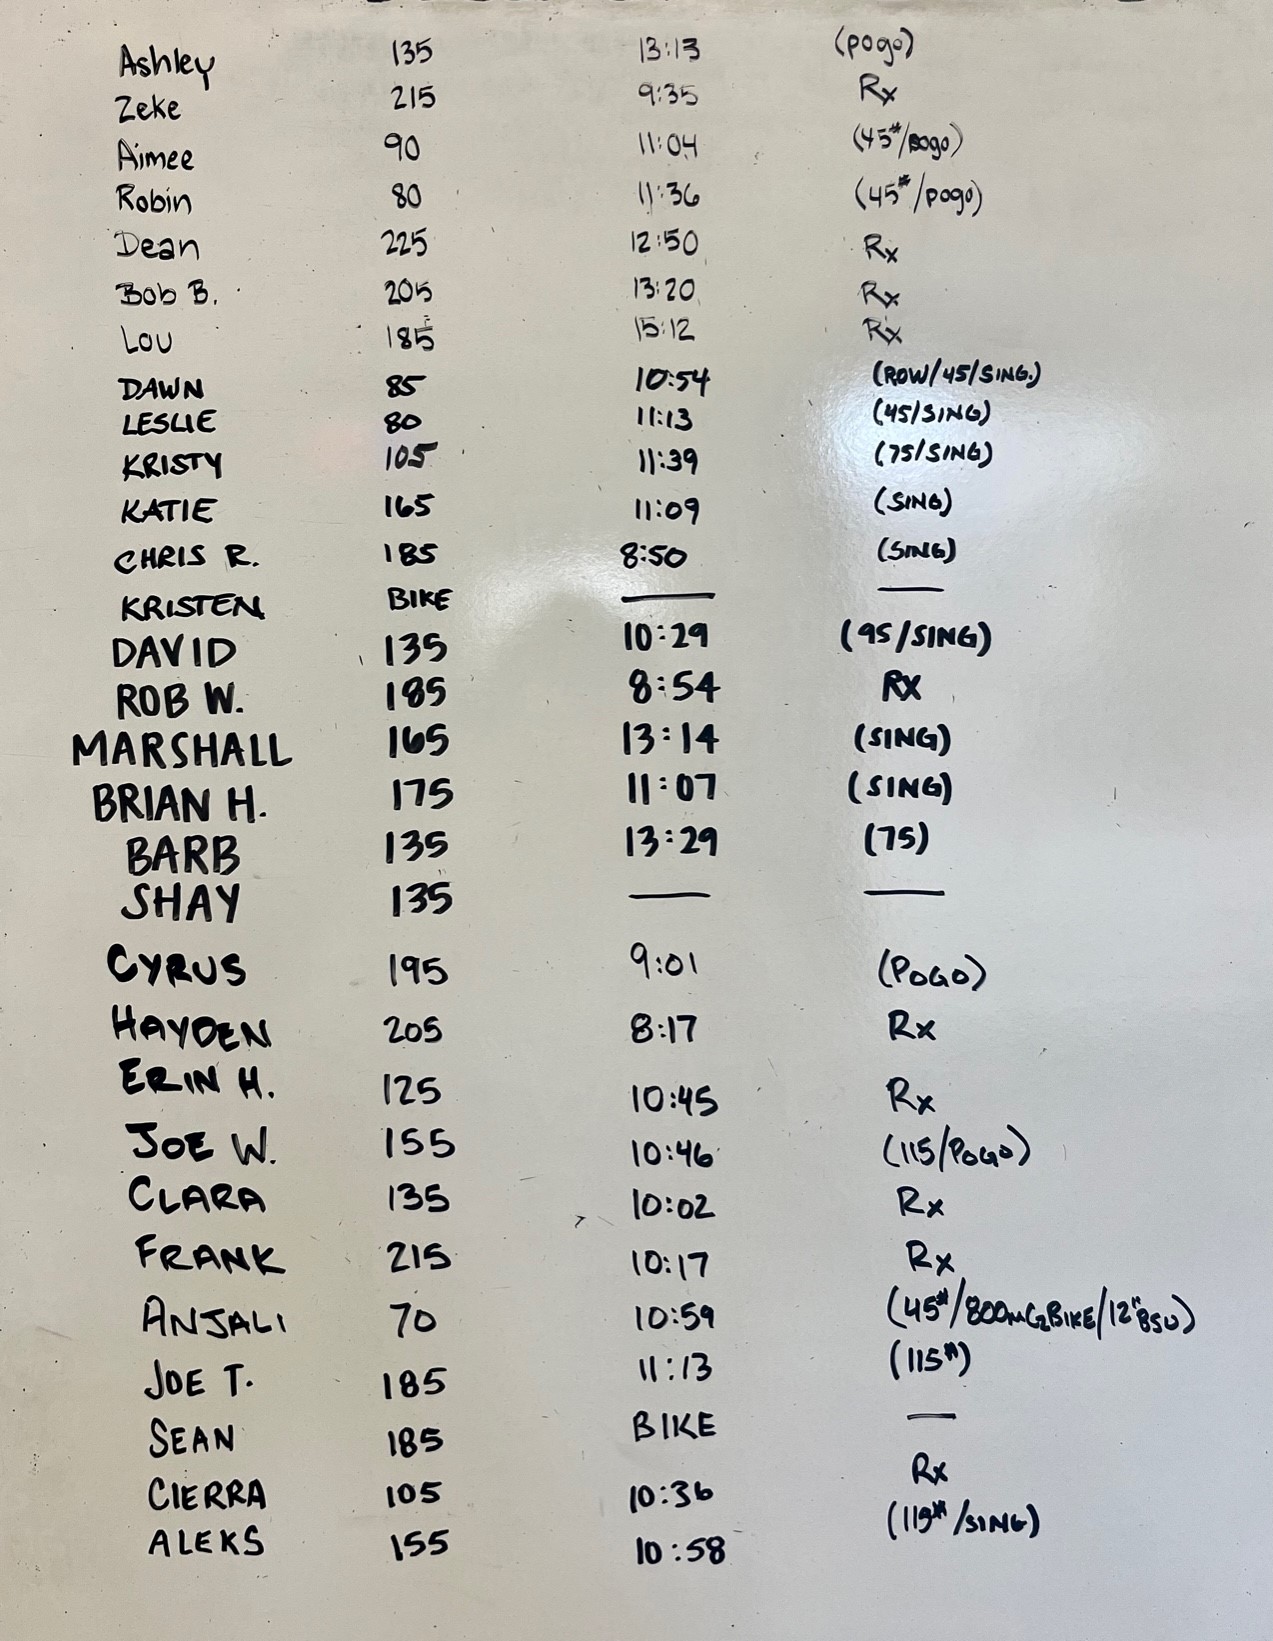 Ashley 135 13:13 (pogo)
Zeke 215 9:35 Rx
Aimee 90 11:04 (45#/pogo)
Robin 80 11:36 (45#/pogo)
Dean 225 12:50 Rx
Bob B. 205 13:20 Rx
Lou 185 15:12 Rx
DAWN 85 10:54 (ROW/45/SING.)
LESLIE 80 11:13 (45/SING)
KRISTY 105 11:39 (75/SING)
KATIE 165 11:09 (SING)
CHRIS R. 185 8:50 (SING)
KRISTEN BIKE — —
DAVID 135 10:29 (95/SING)
ROB W. 185 8:54 RX
MARSHALL 165 13:14 (SING)
BRIAN H. 175 11:07 (SING)
BARB 135 13:29 (75)
SHAY 135 — —
CYRUS 195 9:01 (POGO)
HAYDEN 205 8:17 Rx
ERIN H. 125 10:45 Rx
JOE W. 155 10:46 (115/POGO)
CLARA 135 10:02 Rx
FRANK 215 10:17 Rx
ANJALI 70 10:59 (45#/800m C2BIKE/12" BSU)
JOE T. 185 11:13 (115#)
SEAN 185 BIKE —
CIERRA 105 10:36 Rx
ALEKS 155 10:58 (115#/SING)